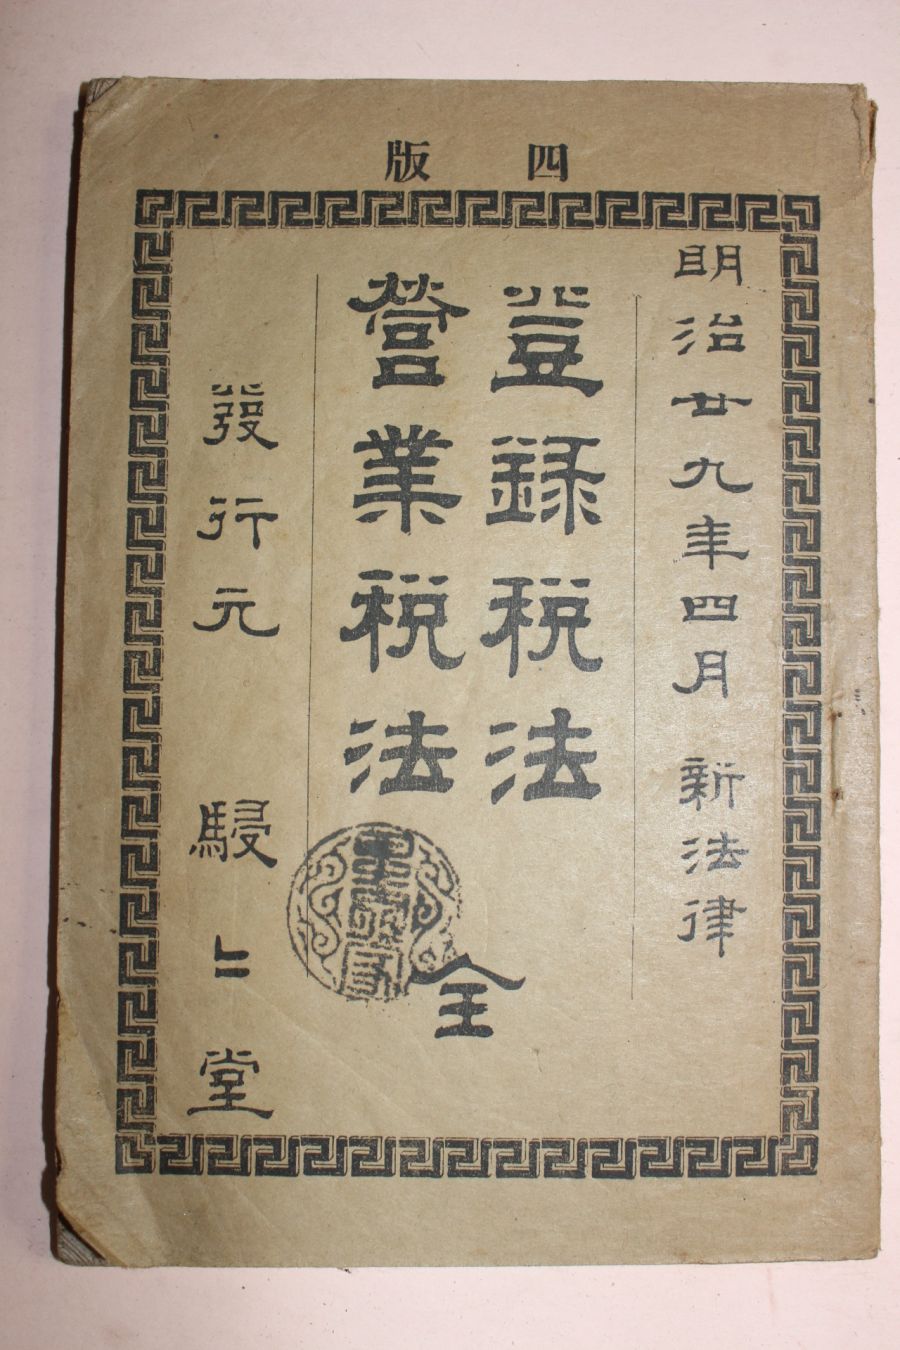 四版
明治廿九年四月 新法律
登録税法
營業税法
全
發行元 駸々堂